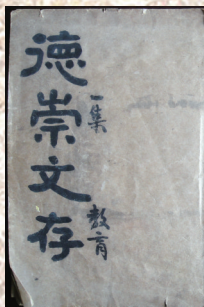 德崇文存
一集
教育